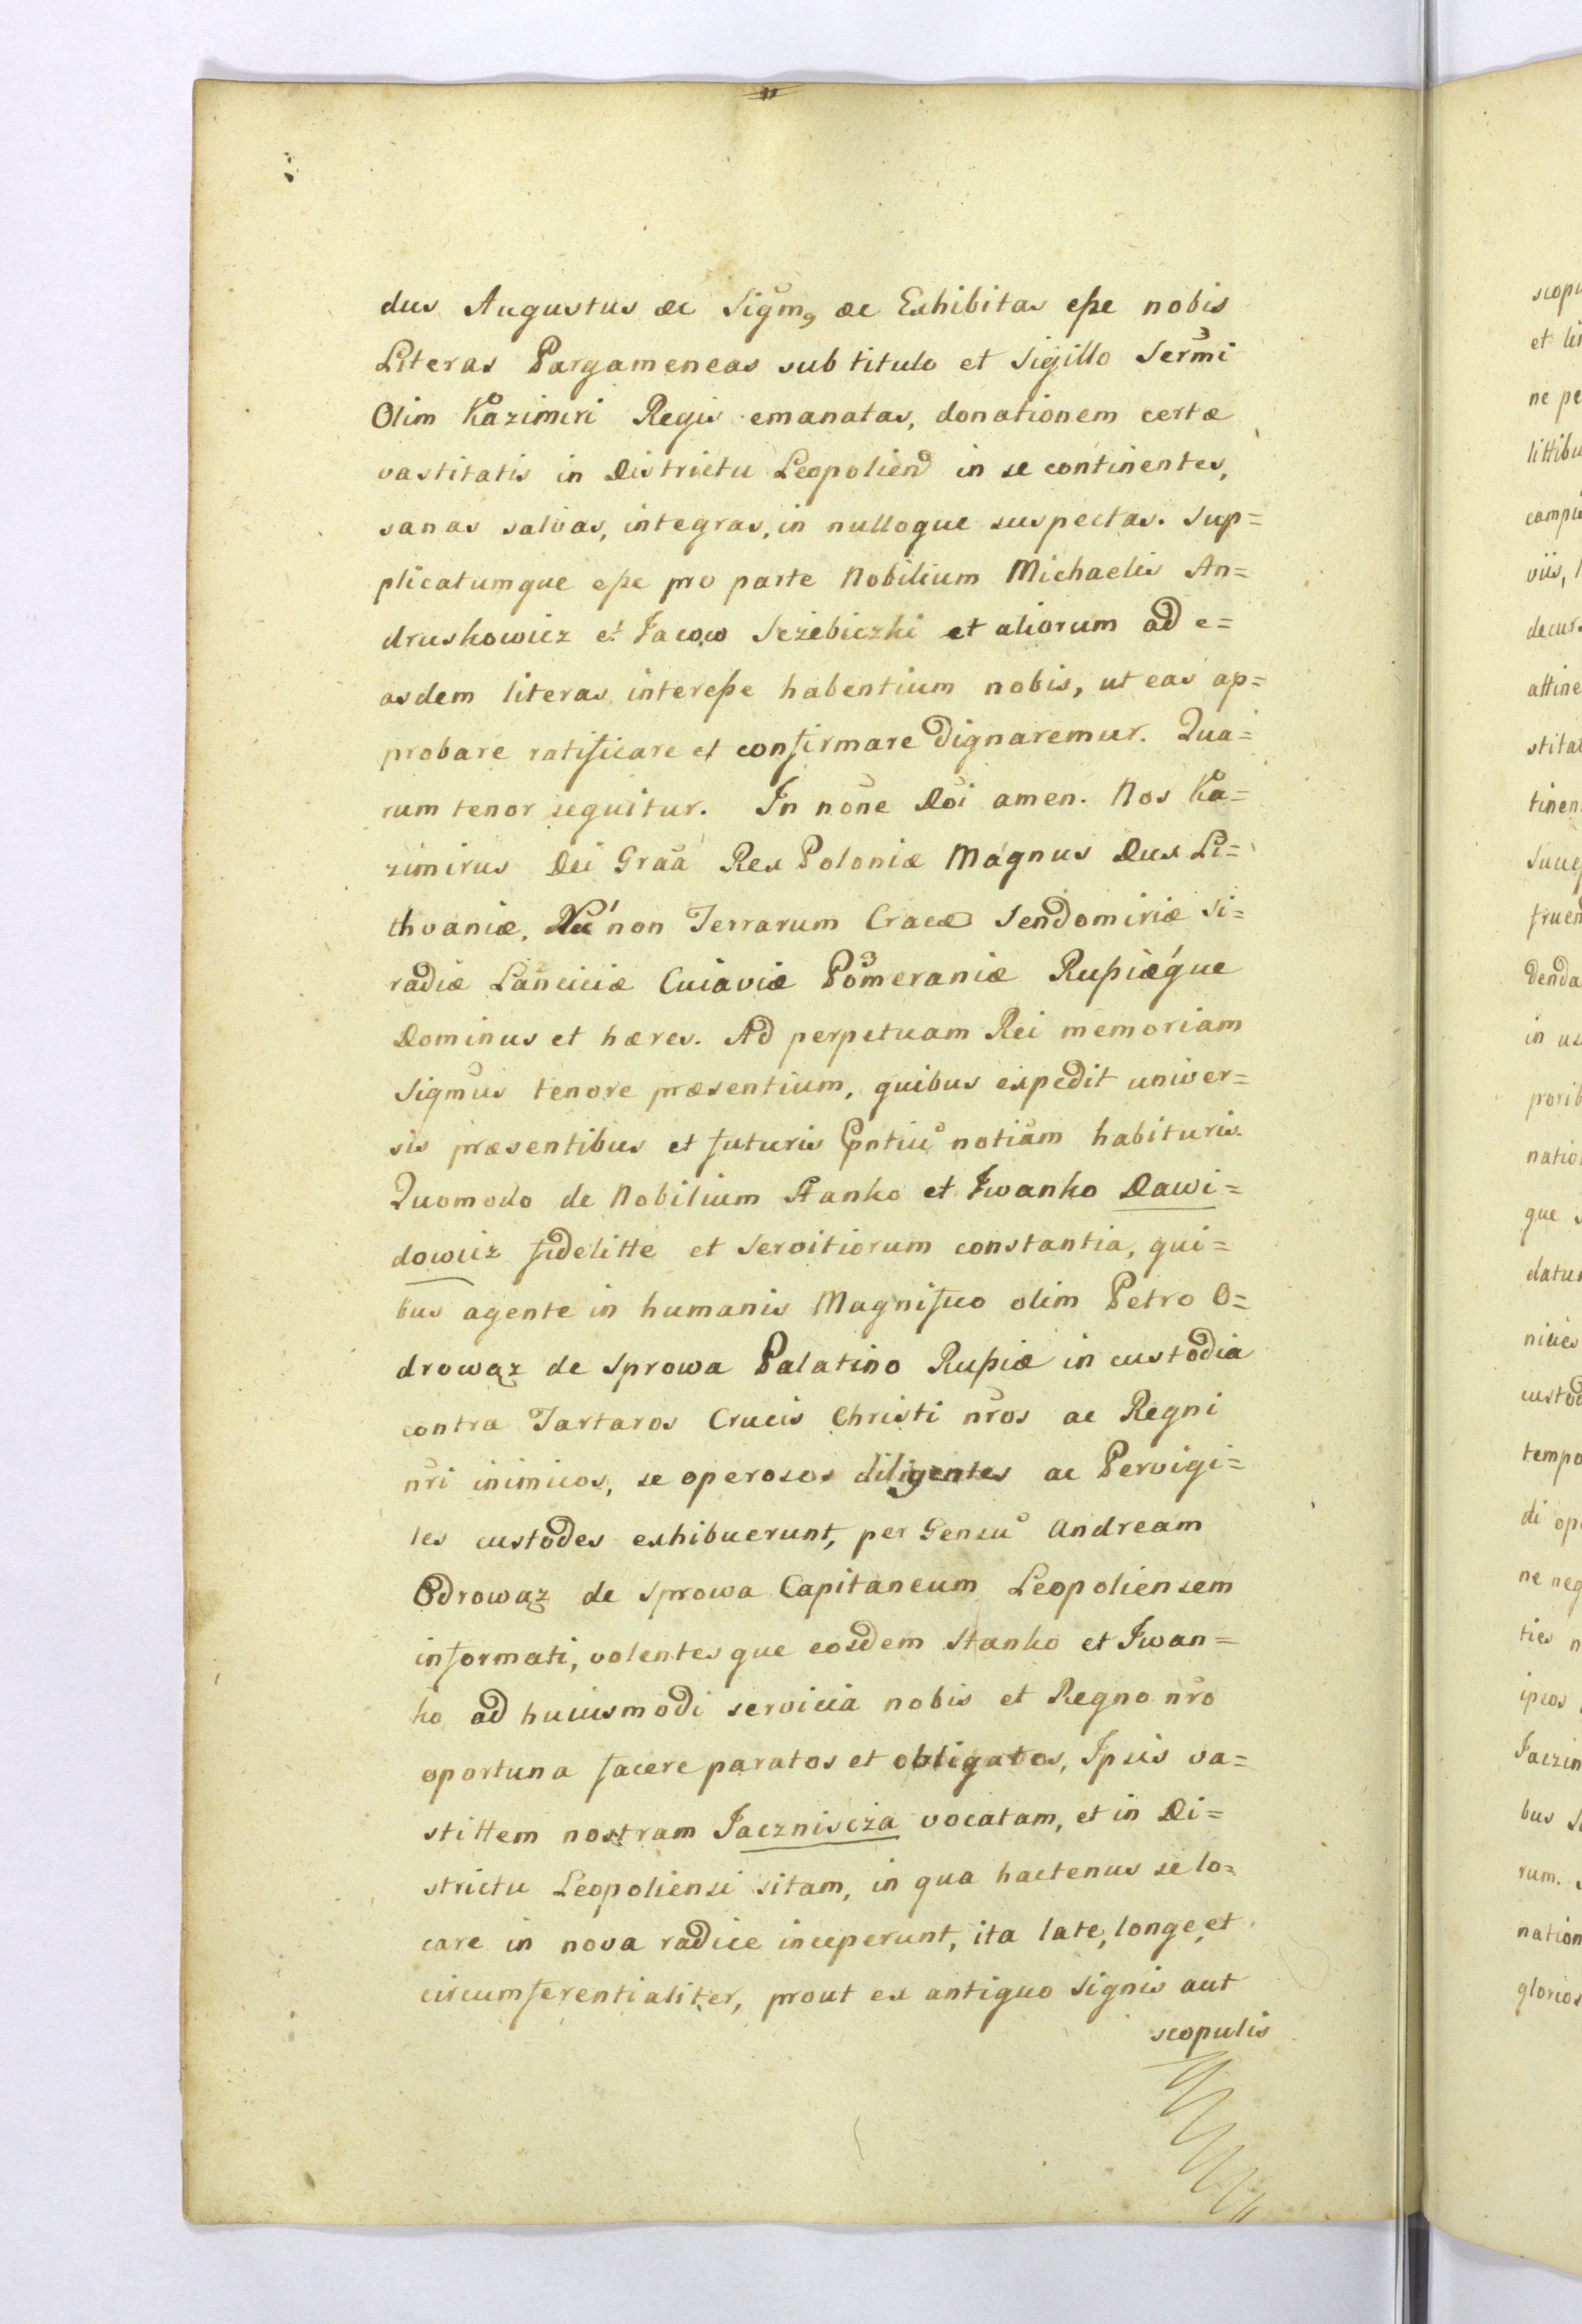 dus Augustus &c Sigm9 &c Exhibitas eſse nobis
Literas Pargameneas sub titulo et Sigillo Sermi
Olim Kazimiri Regis emanatas, donationem certæ
vastitatis in Districtu Leopolien in se continentes,
sanas salvas, integras, in nulloque suspectas. Sup=
plicatumque eſse pro parte Nobilium Michaelis An=
druskowicz et Jacow Sczebiczki et aliorum ad e=
asdem literas intereſse habentium nobis, ut eas ap=
probare ratificare et confirmare dignaremur. Qua=
rum tenor sequitur. In none Dni amen. Nos Ka=
zimirus Dei Graa Rex Poloniæ Magnus Dux Li=
thvaniæ, Nec non Terrarum Cracæ Sendomiriæ Si=
radiæ Lanciciæ Cuiaviæ Pomeraniæ Ruſsiæque
Dominus et hæres. Ad perpetuam Rei memoriam
Sigmus tenore præsentium, quibus expedit univer=
sis præsentibus et futuris Pntiu notiam habituris.
Quomodo de Nobilium Stanko et Iwanko Dawi=
dowicz fidelitte et Servitiorum constantia, qui=
bus agente in humanis Magnifico olim Petro O=
drowąz de Sprowa Palatino Ruſsiæ in custodia
contra Tartaros Crucis Christi nros ac Regni
nri inimicos, se operosos diligentes ac Pervigi=
les custodes exhibuerunt, per Gensu Andream
Odrowąz de Sprowa Capitaneum Leopoliensem
informati, volentesque eosdem Stanko et Iwan=
ko ad huiusmodi servicia nobis et Regno nro
oportuna facere paratos et obligatos, Ipsis va=
stittem nostram Jaczniscza vocatam, et in Di=
strictu Leopoliensi sitam, in qua hactenus se lo=
care in nova radice inceperunt, ita late, longe, et
circumferentialiter, prout ex antiquo Signis aut
scopulis